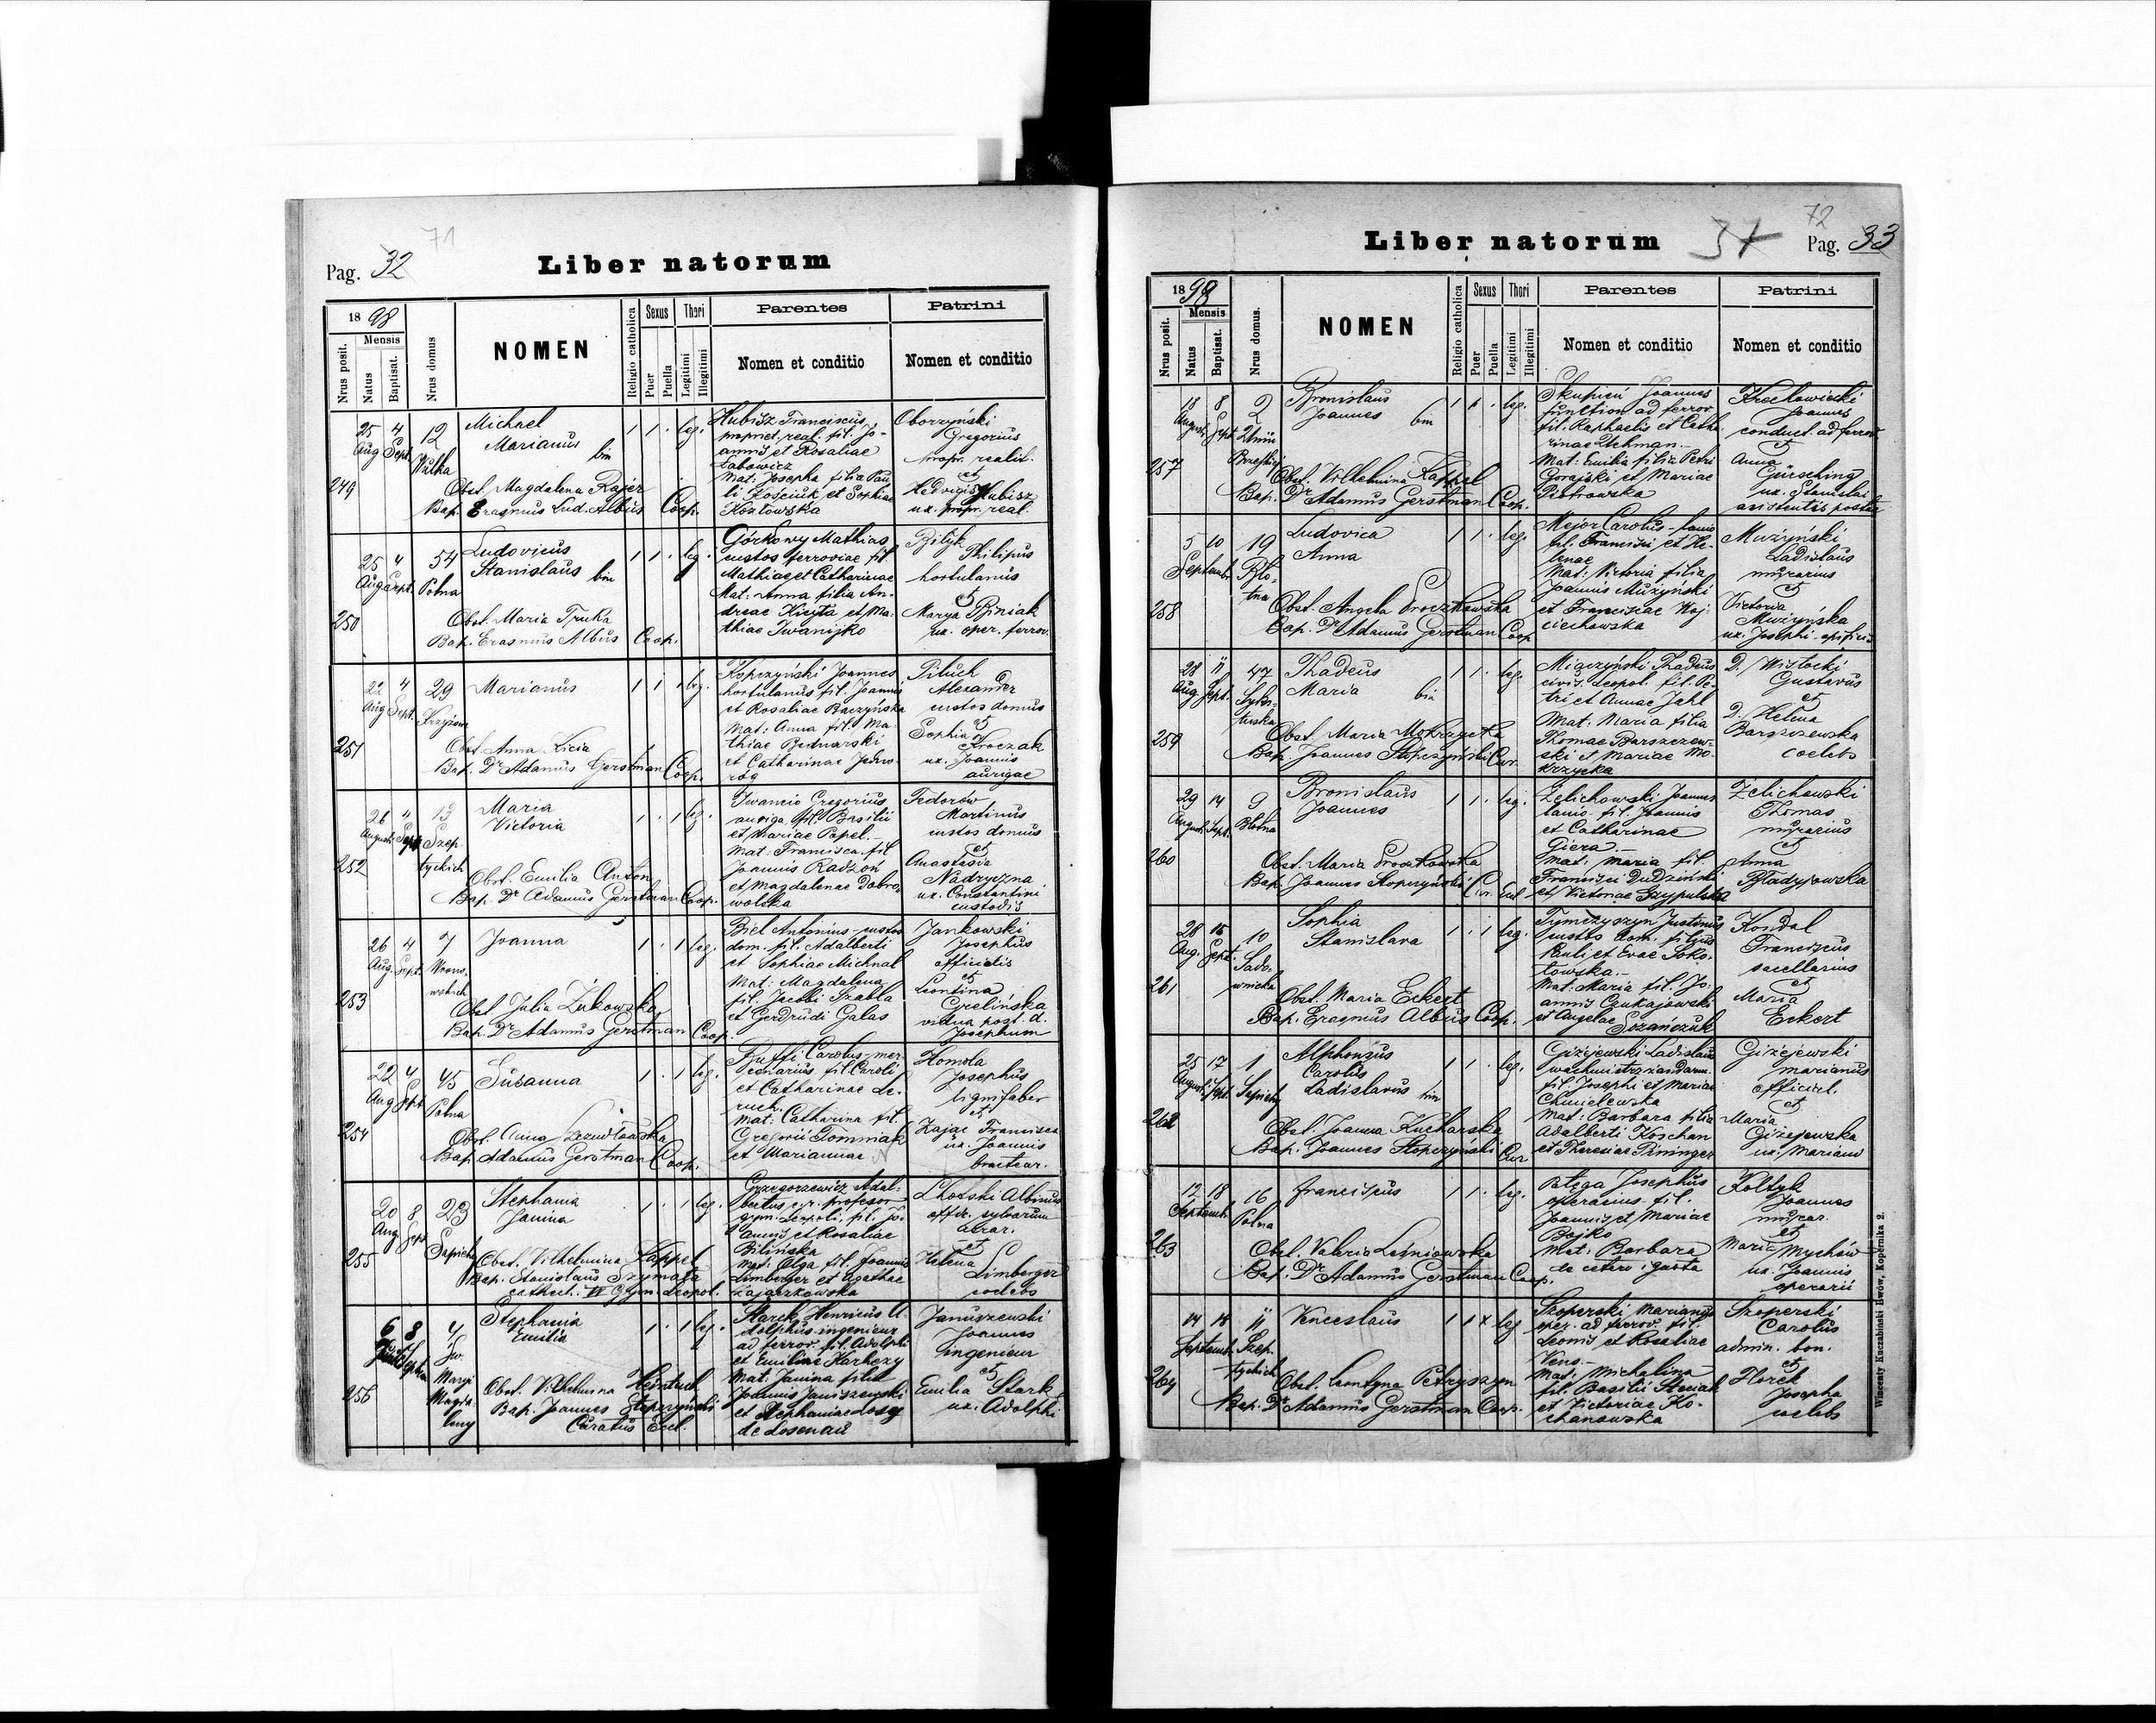 71
Pag. 32
Liber natorum
1898
Mensis
Nrus posit.
Natus
Baptisat.
Nrus domus
NOMEN
Religio catholica
Sexus
Puer
Puella
Thori
Legitimi
Illegitimi
Parentes
Nomen et conditio
Patrini
Nomen et conditio
249
25 Aug
4 Sept.
12
Wulka
Michael
Marianus
bin
1 1 . leg.
Obst. Magdalena Rajer
Bap. Erasmus Lud. Albus Coop.
Hubisz Franciscus
propriet. real. fil. Jo-
annis et Rosaliae
Labowicz
Mat: Josepha filia Pau
li Kościuk et Sophiae
Kozłowska
Oborzyński
Gregorius
propr. realit.
et
Hedvigis Hubisz
ux. propr. real.
250
25 Aug
4 Sept.
54
Polna
Ludovicus
Stanislaus bin
1 1 . leg.
Obst. Maria Truka
Bap. Erasmus Albus Coop.
Górkowy Mathias
custos ferroviae fil.
Mathiae et Catharinae
Mat: Anna filia An-
dreae Kicyta et Ma-
thiae Iwanijko
Bilyk
Philipus
hortulanus
et
Marya Biniak
ux. oper. ferrov.
251
22 Aug
4 Sept.
29
Marianus
1 1 . leg.
Obst. Anna Kicia
Bap. Dr Adamus Gerstman Coop.
Kopczyński Joannes
hortulanus fil. Joannis
et Rosaliae Baczyńska
Mat: Anna fil. Ma-
thiae Bednarski
et Catharinae Jedno-
róg
Pituch
Alexander
custos domus
et
Sophia
Kroczak
ux. Joannis
aurigae
252
26 August.
4 Sept.
13
Szep
tyckich
Maria
Victoria
1 . 1 leg.
Obst. Emilia Anton
Bap. Dr Adamus Gerstman Coop.
Iwancio Gregorius
auriga fil. Basilii
et Mariae Papel.-
Mat: Francisca fil.
Joannis Radzoń
et Magdalenae Dobro
wolska
Fedorów
Martinus
custos domus
et
Anastasia
Nadryczna
ux. Constantini
custodis
253
26 Aug.
4 Sept.
7
Wrono-
wskich
Joanna
1 . 1 leg.
Obst. Julia Żukowska
Bap. Dr Adamus Gerstman Coop.
Biel Antonius custos
dom. fil. Adalberti
et Sophiae Michnal
Mat: Magdalena
fil. Jacobi Szabla
et Gerdrudi Galas
Jankowski
Josephus
officialis
et
Leontina
Grelińska
vidua post. d.
Josephum
254
22 Aug
4 Sept.
45
Polna
Susanna
1 . 1 leg.
Obst. Anna
Bap. Adamus Gerstman Coop.
Buffi Carolus mer-
cenarius fil. Caroli
et Catharinae Le-
ruch.
Mat: Catharina fil.
Gregorii Tomniak
et Mariannae N
Homola
Josephus
lignifaber
et
Zajac Francisca
ux. Joannis
bractear.
255
20 Aug
8 Sept
23
Sapiehy
Stephania
Janina
1 . 1 leg.
Obst. Vilhelmina Kappel
Bap. Stanislaus Szymała
cathech. VI Gym. Leopol.
Grzegorzewicz Adal-
bertus profesor
gymn. Leopoli, fil. Jo-
annis et Rosaliae
Bilińska
Mat: Olga fil. Joannis
Limberger et Agathae
Zajączkowska
Lhotski Albinus
offic. sylvarum
aerar.
et
Helena
Limberger
coelebs
256
6
8
4
Św.
Maryi
Magda
leny
Stephania
Emilia
1 . 1 leg.
Obst. Vilhelmina
Bap. Joannes Stopczyński
Curatus Eccl.
Starck Henricus A-
dolphus ingenieur
ad ferrov. fil. Adolphi
et Emiliae Harhezy
Mat: Janina filia
Joannis Januszewski
et Stephaniae Losey
de Losenau
Januszewski
Joannes
ingenieur
et
Emilia Stark
ux. Adolphi
72
Liber natorum
Pag. 33
1898
Mensis
Nrus posit.
Natus
Baptisat.
Nrus domus.
NOMEN
Religio catholica
Sexus
Puer
Puella
Thori
Legitimi
Illegitimi
Parentes
Nomen et conditio
Patrini
Nomen et conditio
257
18 August.
8 Sept
2
Bronislaus
Joannes
bin
1 1 . leg.
Obst. Vilhelmina Kappel
Bap. Dr Adamus Gerstman Coop.
Skupień Joannes
function ad ferrov
fil. Raphaelis et Catha
rinae Uchman.-
Mat: Emilia filia Petri
Gorajski et Mariae
Piotrowska
Joannes
conduct. ad ferrov.
et
Anna
Gürsching
ux. Stanislai
asistentis postae
258
5
10
Septemb.
19
Bło-
tna
Ludovica
Anna
1 1 . leg.
Obst. Angela Sroczkowska
Bap. Dr Adamus Gerstman Coop
Mejor Carolus - lanio
fil. Francisci et He-
lenae
Mat: Victoria filia
Joannis Mużyński
et Franciscae Woj
ciechowska
Mużyński
Ladislaus
murarius
et
Victoria
Mużyńska
ux. Josephi opificis
259
28 Aug
11 Sept.
47
Sykstuska
Thadeus
Maria
bin
1 1 . leg.
Obst. Maria Mokrzycka
Bap. Joannes Stopczyński Cur.
Miączyński Thadeus
civis Leopol. fil. Pe-
tri et Annae Jahl
Mat: Maria filia
Thomae Barszczew-
ski et Mariae Mo-
krzycka
D. Wisłocki
Gustavus
et
D. Helena
Barszczewska
coelebs
260
29 August.
14 Sept.
9
Błotna
Bronislaus
Joannes
1 1 . leg.
Obst. Maria Sroczkowska
Bap. Joannes Stopczyński Cur. Eccl
Zelichowski Joannes
lanio. fil. Joannis
et Catharinae
Giera.-
Mat: Maria fil.
Francisci Dudziński
et Victoriae Szypulska
Żelichowski
Thomas
murarius
et
Anna
Bładyjowska
261
28 Aug.
15 Sept.
10
Sado-
wnicka
Sophia
Stanislava
1 . 1 leg.
Obst. Maria Eckert
Bap. Erasmus Albus Coop.
Tymczyszyn Justinus
custos dom. filius
Pauli et Evae Soko-
łowska.-
Mat: Maria fil. Jo-
annis Czukajowski
et Angelae
Szzańczuk
Kondol
Franciscus
sacellarius
et
Maria
Eckert
262
25 August.
17 Sept.
1
Sapiehy
Alphonsus
Carolus
Ladislavus bin
1 1 . leg.
Obst. Joanna Kucharska
Bap. Joannes Stopczyński Cur
Giżejewski Ladislaus
wachmistrz żandarm.
fil. Josephi et Mariae
Chmielewska
Mat: Barbara filia
Adalberti Koschan
et Theresiae Pininger
Giżejewski
Marianus
official.
et
Maria
Giżejewska
ux. Mariani
263
12
18
Septemb.
16
Polna
Franciscus
1 1 . leg.
Obst. Valeria Leśniowska
Bap. Dr Adamus Gerstman Coop.
Pałęga Josephus
operarius fil.
Joannis et Mariae
Bojko
Mat: Barbara
Kołtyk
Joannes
murar.
et
Maria Mychów
ux. Joannis
operarii
264
14
18
Septemb.
11
Szep-
tyckich
Venceslaus
1 1 x leg
Obst. Leontyna Petryszyn
Bap. Dr Adamus Gerstman Coop.
Szoperski Marianus
oper. ad ferrov. fil.
Leonis et Rosaliae
Vens.-
Mat: Michalina
fil. Basilii Steciak
et Victoriae Ko-
chanowska
Szoperski
Carolus
admin. bon.
et
Florek
Josepha
coelebs
Wincenty Kuczabiński Lwów, Kopernika 2.